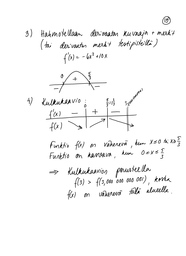 3) Hahmotellaan derivaatan kuvaaja + merkit
(tai derivaatan merkit testipisteillä)
f'(x) = -6x² + 10x
- 0 + 5/3 -
4) Kulkukaavio:
0 5/3
f'(x) - + -
f(x)
Funktio f(x) on vähenevä, kun x≤0 tai x≥5/3
Funktio on kasvava, kun 0≤x≤5/3
⇒ Kulkukaavion perusteella
f(3) > f(3,000 000 000 001), koska
f(x) on vähenevä tällä alueella.